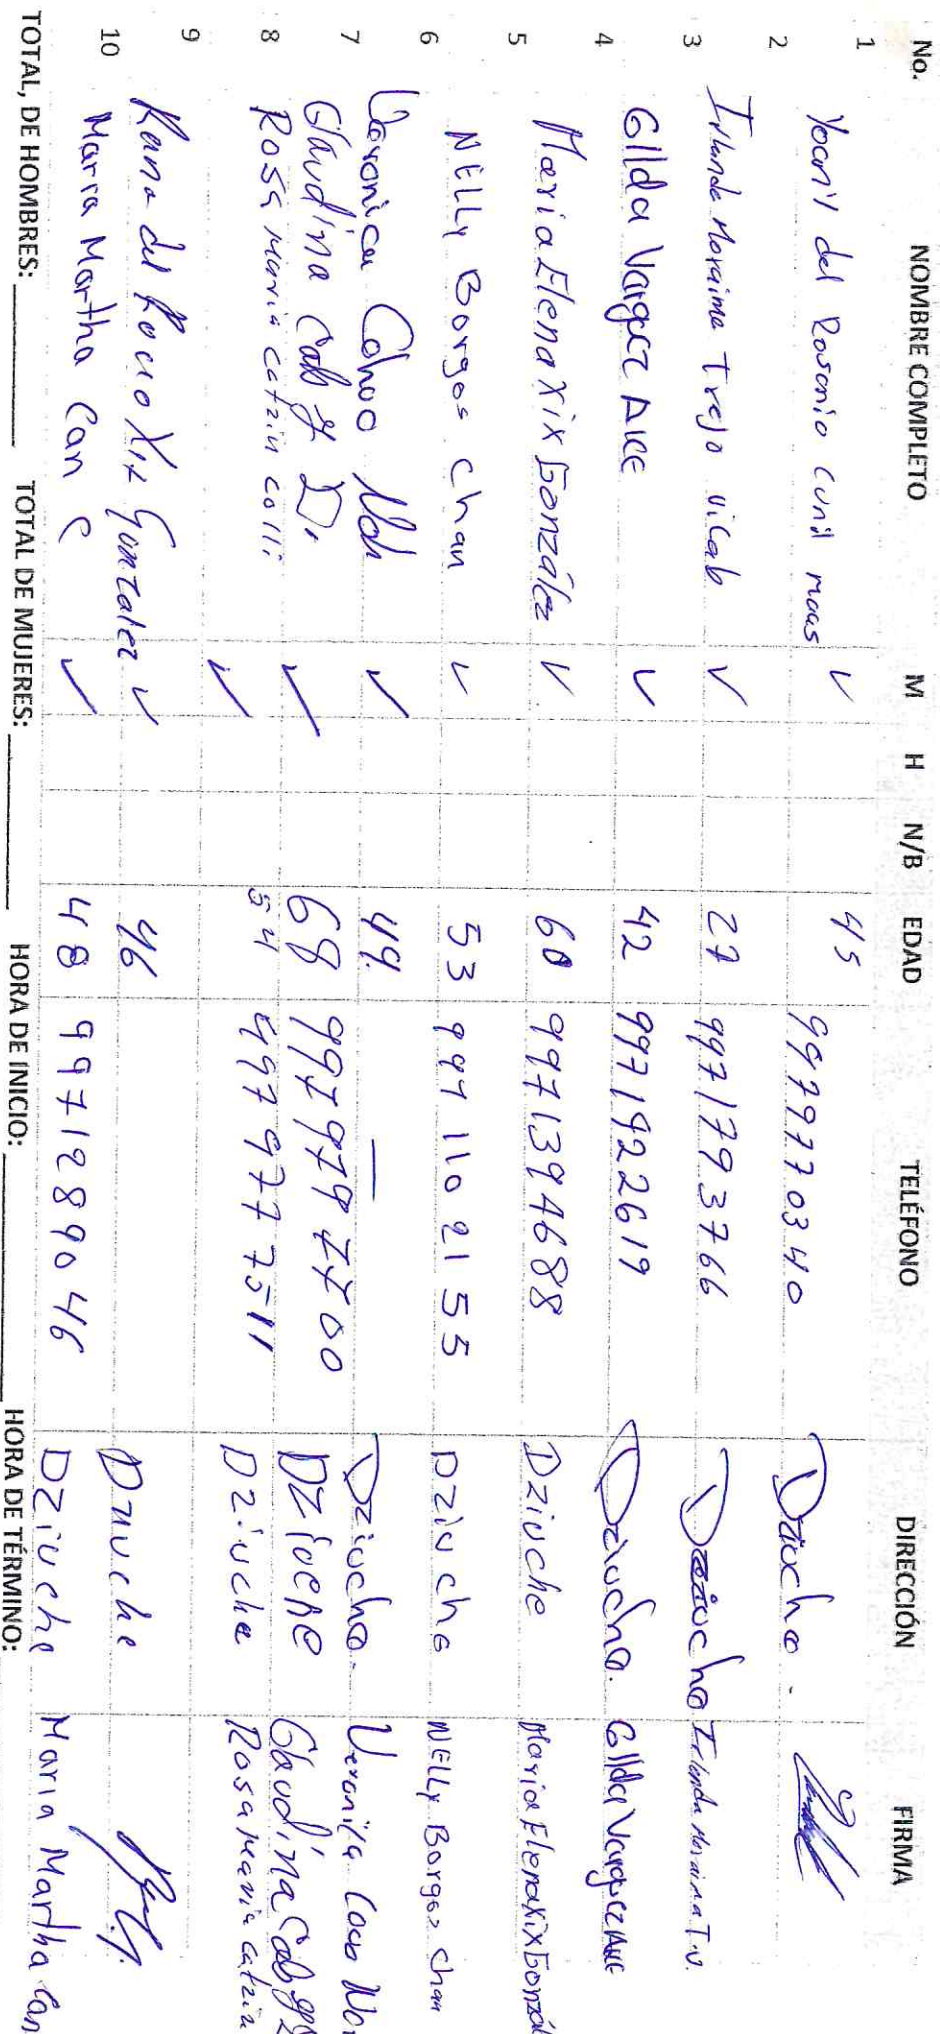 No. NOMBRE COMPLETO M H N/B EDAD TELÉFONO DIRECCIÓN FIRMA
1 Yoanii del Rosario Cunil maas ✓ 45 9979770340 Dziuche.
2
3 Irlanda Moraima Trejo Vicab ✓ 27 9971793766 Dziuche Irlanda Moraima T.V.
4 Gilda Varguez Ake ✓ 42 9971922619 Dziuche. Gilda Varguez Ake
5 Maria Elena Xix González ✓ 60 9971394688 Dziuche Maria Elena Xix Gonzál
6 NELLY Borges Chan ✓ 53 997 110 21 55 Dziuche NELLY Borges Chan
7 Veronica Cohuo Noh ✓ 49. — Dziuche. Veronica
Claudina Cab ✓ 68 997 979 7700 Dziuche Claudina Cab
8 Rosa maria catzin colli ✓ 54 9979777511 Dziuche Rosa maria catzin
9
10 Rena del Rocio Xix Gonzalez ✓ 46 Dziuche
Maria Martha Can C ✓ 48 9971289046 Dziuche Maria Martha Can
TOTAL, DE HOMBRES: TOTAL DE MUJERES: HORA DE INICIO: HORA DE TÉRMINO: